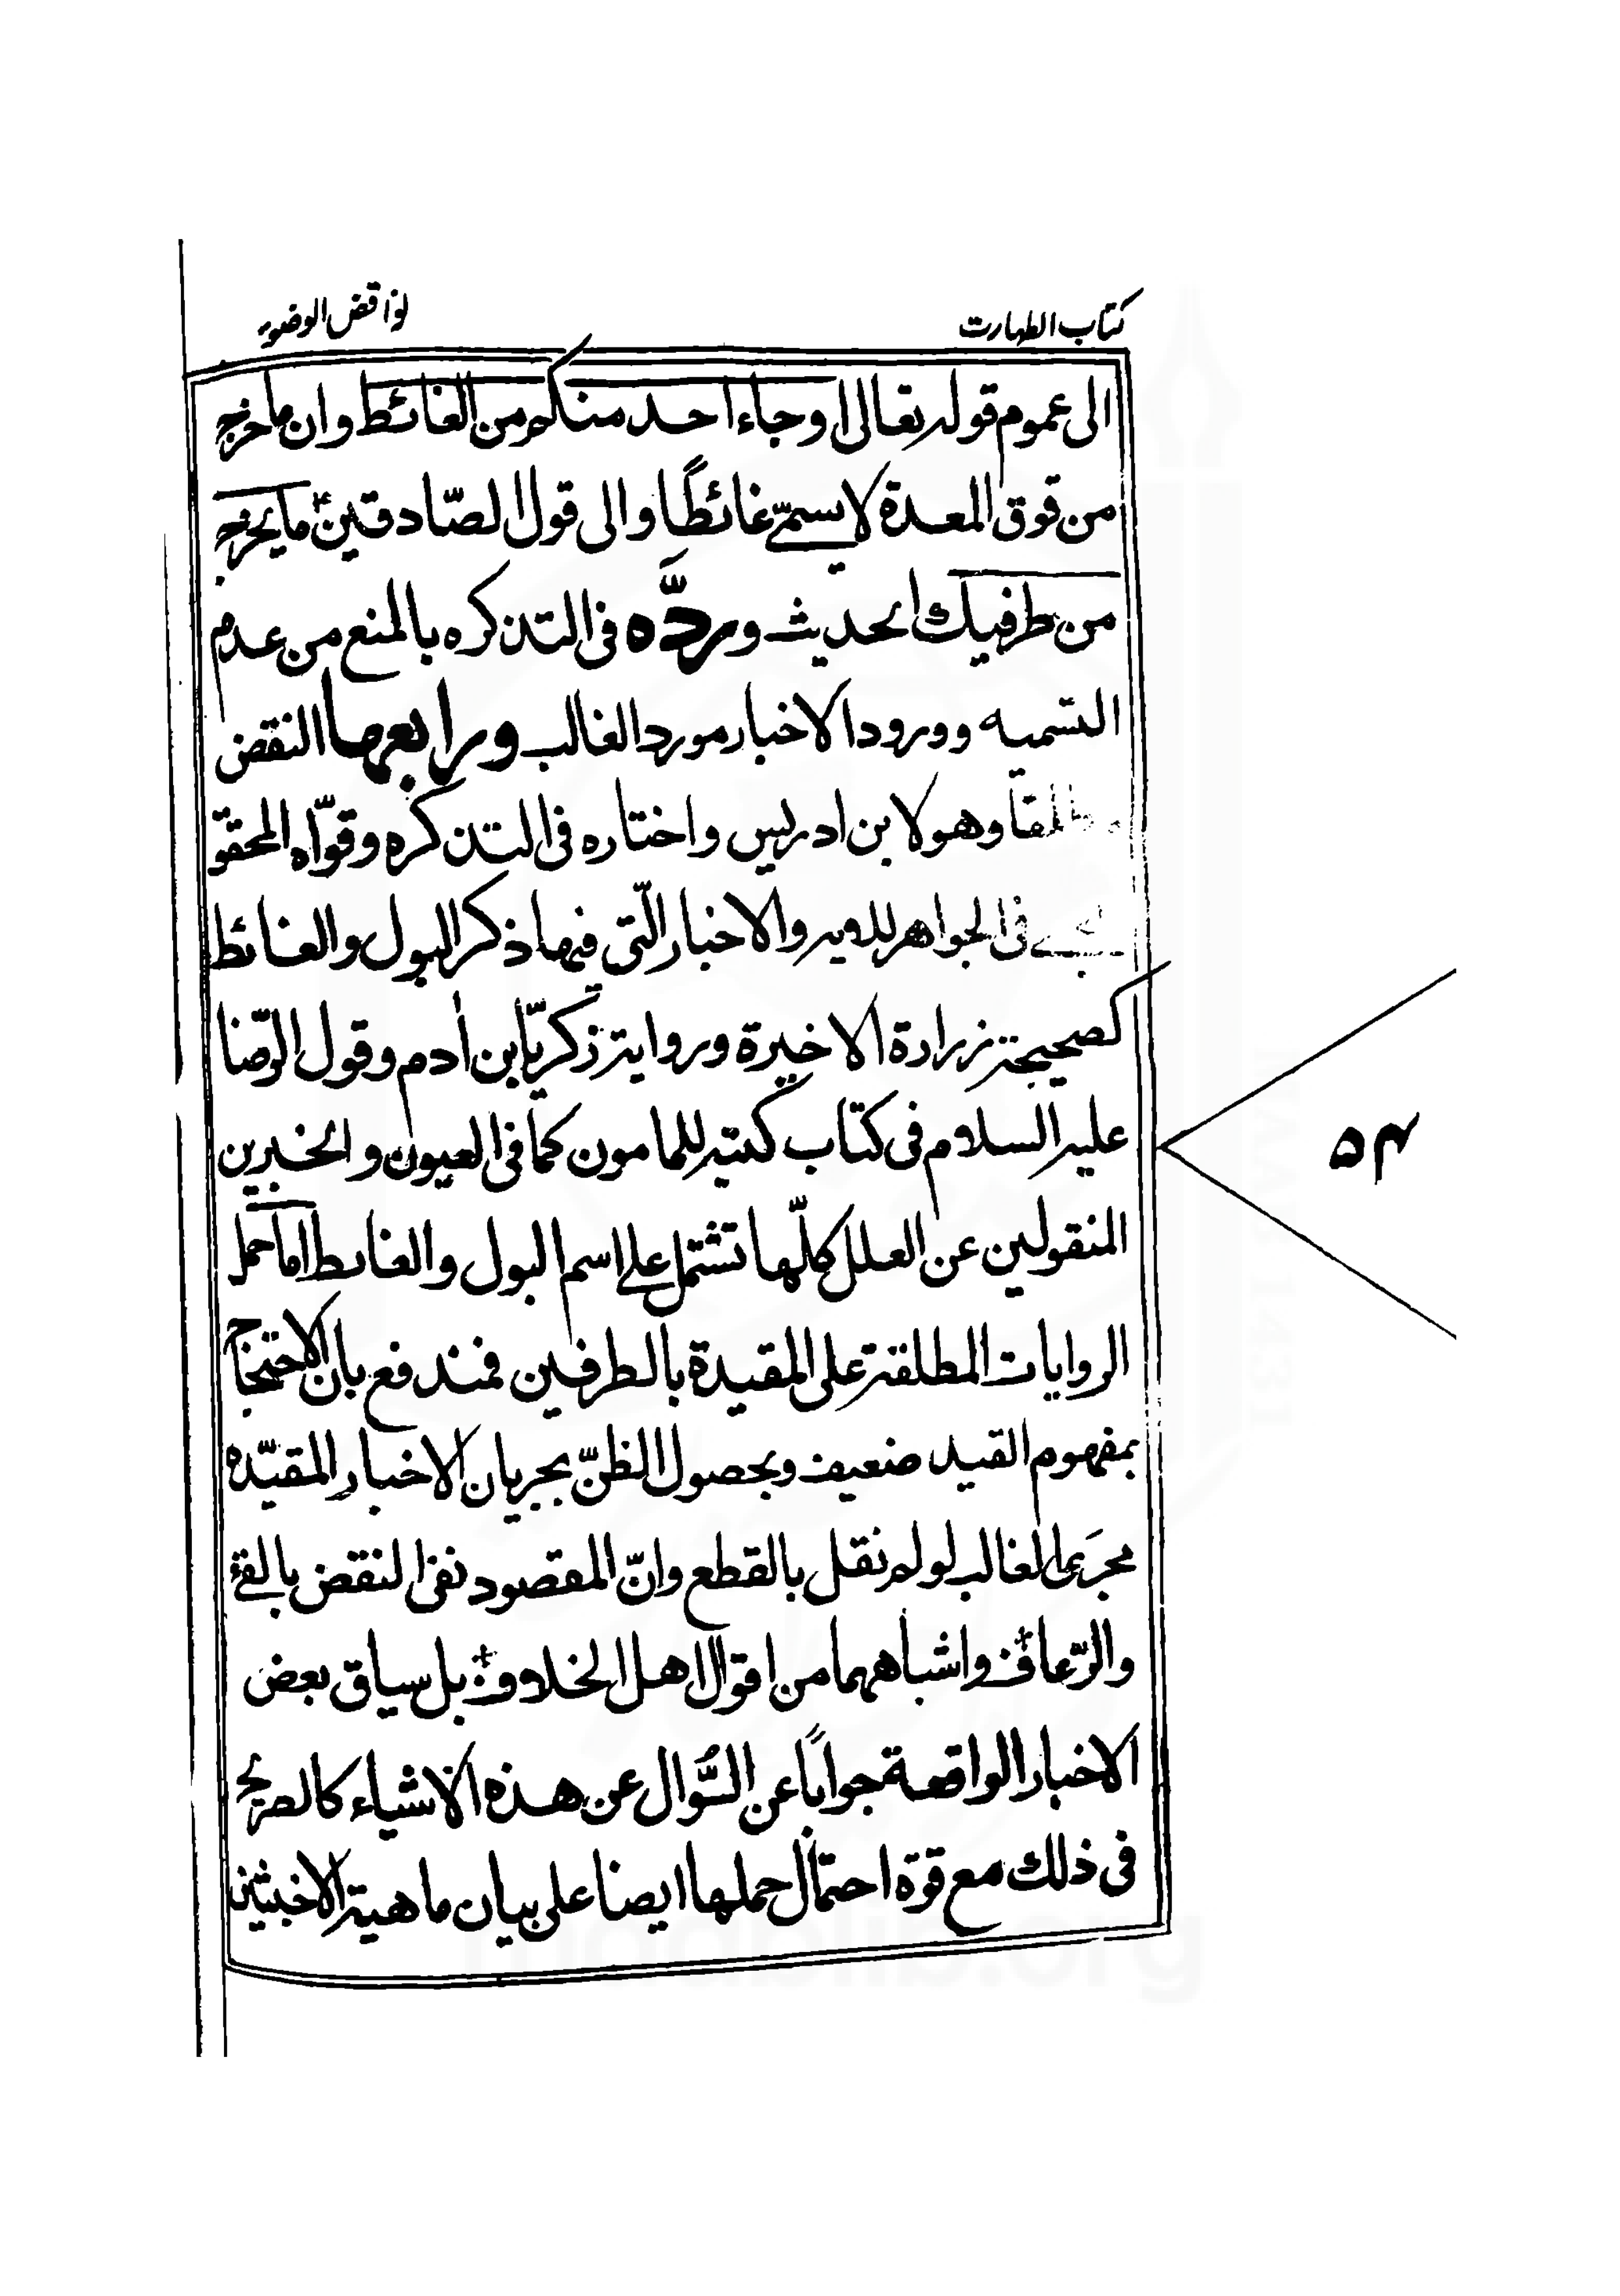 كتاب الطهارت
نواقض الوضوء
الى عموم قوله تعالى اوجاء احد منكم من الغائط وان ما خرج
من فوق المعدة لا يسمّى غائطًا والى قول الصّادقين ما يخرج
من طرفيك الحديث وردَّه فى التذكره بالمنع من عدم
التسميه وورود الاخبار مورد الغالب ورابعها النقض
مطلقا وهو لابن ادريس واختاره فى التذكره وقوّاه المحقق
فى الجواهر للاويه والاخبار الّتى فيها ذكر البول والغائط
كصحيحة زرارة الاخيرة ورواية زكريّا بن أدم وقول الرّضا
عليه السلام فى كتاب كتبه للمامون كما فى العيون والخبرين
المنقولين عن العلل كلّها تشتمل على اسم البول والغائط اما حمل
الروايات المطلقة على المقيدة بالطرفين فمندفع بان الاحتجاج
بمفهوم القيد ضعيف وبحصول الظنّ بجريان الاخبار المقيّده
مجرى الغالب لو لم نقل بالقطع وانّ المقصود نفى النقض بالقئ
والرّعاف واشباههما من اقوال اهل الخلاف بل سياق بعض
الاخبار الواقعة جوابًا عن السُّوال عن هذه الاشياء كالصريح
فى ذلك مع قوة احتمال حملها ايضا على بيان ماهية الاخبثين
٥٣